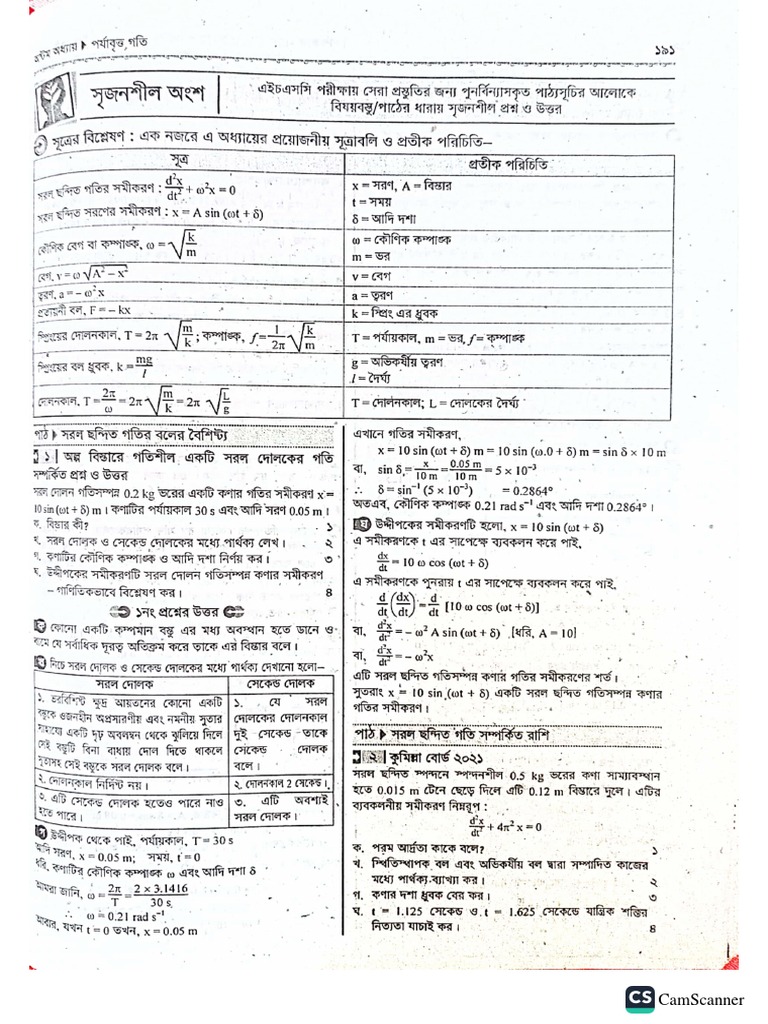 অষ্টম অধ্যায় ▶ পর্যাবৃত্ত গতি
১৯১
সৃজনশীল অংশ
এইচএসসি পরীক্ষায় সেরা প্রস্তুতির জন্য পুনর্বিন্যাসকৃত পাঠ্যসূচির আলোকে
বিষয়বস্তু/পাঠের ধারায় সৃজনশীল প্রশ্ন ও উত্তর
সূত্রের বিশ্লেষণ : এক নজরে এ অধ্যায়ের প্রয়োজনীয় সূত্রাবলি ও প্রতীক পরিচিতি–
সূত্র
প্রতীক পরিচিতি
সরল ছন্দিত গতির সমীকরণ : d²x/dt² + ω²x = 0
সরল ছন্দিত সরণের সমীকরণ : x = A sin (ωt + δ)
x = সরণ, A = বিস্তার
t = সময়
δ = আদি দশা
কৌণিক বেগ বা কম্পাঙ্ক, ω = √(k/m)
ω = কৌণিক কম্পাঙ্ক
m = ভর
বেগ, v = ω √(A² – x²)
v = বেগ
ত্বরণ, a = – ω²x
a = ত্বরণ
প্রত্যয়নী বল, F = – kx
k = স্প্রিং এর ধ্রুবক
স্প্রিংয়ের দোলনকাল, T = 2π √(m/k) ; কম্পাঙ্ক, f = 1/2π √(k/m)
T = পর্যায়কাল, m = ভর, f = কম্পাঙ্ক
স্প্রিংয়ের বল ধ্রুবক, k = mg/l
g = অভিকর্ষীয় ত্বরণ
l = দৈর্ঘ্য
দোলনকাল, T = 2π/ω = 2π √(m/k) = 2π √(L/g)
T = দোলনকাল; L = দোলকের দৈর্ঘ্য
পাঠ ▶ সরল ছন্দিত গতির বলের বৈশিষ্ট্য
১ | অল্প বিস্তারে গতিশীল একটি সরল দোলকের গতি
সম্পর্কিত প্রশ্ন ও উত্তর
সরল দোলন গতিসম্পন্ন 0.2 kg ভরের একটি কণার গতির সমীকরণ x =
10 sin (ωt + δ) m। কণাটির পর্যায়কাল 30 s এবং আদি সরণ 0.05 m।
ক. বিস্তার কী? ১
খ. সরল দোলক ও সেকেন্ড দোলকের মধ্যে পার্থক্য লেখ। ২
গ. কণাটির কৌণিক কম্পাঙ্ক ও আদি দশা নির্ণয় কর। ৩
ঘ. উদ্দীপকের সমীকরণটি সরল দোলন গতিসম্পন্ন কণার সমীকরণ
– গাণিতিকভাবে বিশ্লেষণ কর। ৪
১নং প্রশ্নের উত্তর
ক কোনো একটি কম্পমান বস্তু এর মধ্য অবস্থান হতে ডানে ও
বামে যে সর্বাধিক দূরত্ব অতিক্রম করে তাকে এর বিস্তার বলে।
খ নিচে সরল দোলক ও সেকেন্ড দোলকের মধ্যে পার্থক্য দেখানো হলো–
সরল দোলক
সেকেন্ড দোলক
১. ভরবিশিষ্ট ক্ষুদ্র আয়তনের কোনো একটি
বস্তুকে ওজনহীন অপ্রসারণীয় এবং নমনীয় সুতার
সাহায্যে একটি দৃঢ় অবলম্বন থেকে ঝুলিয়ে দিলে
সেই বস্তুটি বিনা বাধায় দোল দিতে থাকলে
সুতাসহ সেই বস্তুকে সরল দোলক বলে।
১. যে সরল
দোলকের দোলনকাল
দুই সেকেন্ড তাকে
সেকেন্ড দোলক
বলে।
২. দোলনকাল নির্দিষ্ট নয়।
২. দোলনকাল 2 সেকেন্ড।
৩. এটি সেকেন্ড দোলক হতেও পারে নাও
হতে পারে।
৩. এটি অবশ্যই
সরল দোলক।
গ উদ্দীপক থেকে পাই, পর্যায়কাল, T = 30 s
আদি সরণ, x = 0.05 m; সময়, t = 0
ধরি, কণাটির কৌণিক কম্পাঙ্ক ω এবং আদি দশা δ
আমরা জানি, ω = 2π/T = 2 × 3.1416/30 s
∴ ω = 0.21 rad s⁻¹
আবার, যখন t = 0 তখন, x = 0.05 m
এখানে গতির সমীকরণ,
x = 10 sin (ωt + δ) m = 10 sin (ω.0 + δ) m = sin δ × 10 m
বা, sin δ = x/10 m = 0.05 m/10 m = 5 × 10⁻³
∴ δ = sin⁻¹ (5 × 10⁻³) = 0.2864°
অতএব, কৌণিক কম্পাঙ্ক 0.21 rad s⁻¹ এবং আদি দশা 0.2864°।
ঘ উদ্দীপকের সমীকরণটি হলো, x = 10 sin (ωt + δ)
এ সমীকরণকে t এর সাপেক্ষে ব্যবকলন করে পাই,
dx/dt = 10 ω cos (ωt + δ)
এ সমীকরণকে পুনরায় t এর সাপেক্ষে ব্যবকলন করে পাই,
d/dt (dx/dt) = d/dt [10 ω cos (ωt + δ)]
বা, d²x/dt² = – ω² A sin (ωt + δ) [ধরি, A = 10]
বা, d²x/dt² = – ω²x
এটি সরল ছন্দিত গতিসম্পন্ন কণার গতির সমীকরণের শর্ত।
সুতরাং x = 10 sin (ωt + δ) একটি সরল ছন্দিত গতিসম্পন্ন কণার
গতির সমীকরণ।
পাঠ ▶ সরল ছন্দিত গতি সম্পর্কিত রাশি
২ | কুমিল্লা বোর্ড ২০২১
সরল ছন্দিত স্পন্দনে স্পন্দনশীল 0.5 kg ভরের কণা সাম্যাবস্থান
হতে 0.015 m টেনে ছেড়ে দিলে এটি 0.12 m বিস্তারে দুলে। এটির
ব্যবকলনীয় সমীকরণ নিম্নরূপ :
d²x/dt² + 4π²x = 0
ক. পরম আর্দ্রতা কাকে বলে? ১
খ. স্থিতিস্থাপক বল এবং অভিকর্ষীয় বল দ্বারা সম্পাদিত কাজের
মধ্যে পার্থক্য ব্যাখ্যা কর। ২
গ. কণার দশা ধ্রুবক বের কর। ৩
ঘ. t = 1.125 সেকেন্ড ও t = 1.625 সেকেন্ডে যান্ত্রিক শক্তির
নিত্যতা যাচাই কর। ৪
CS CamScanner